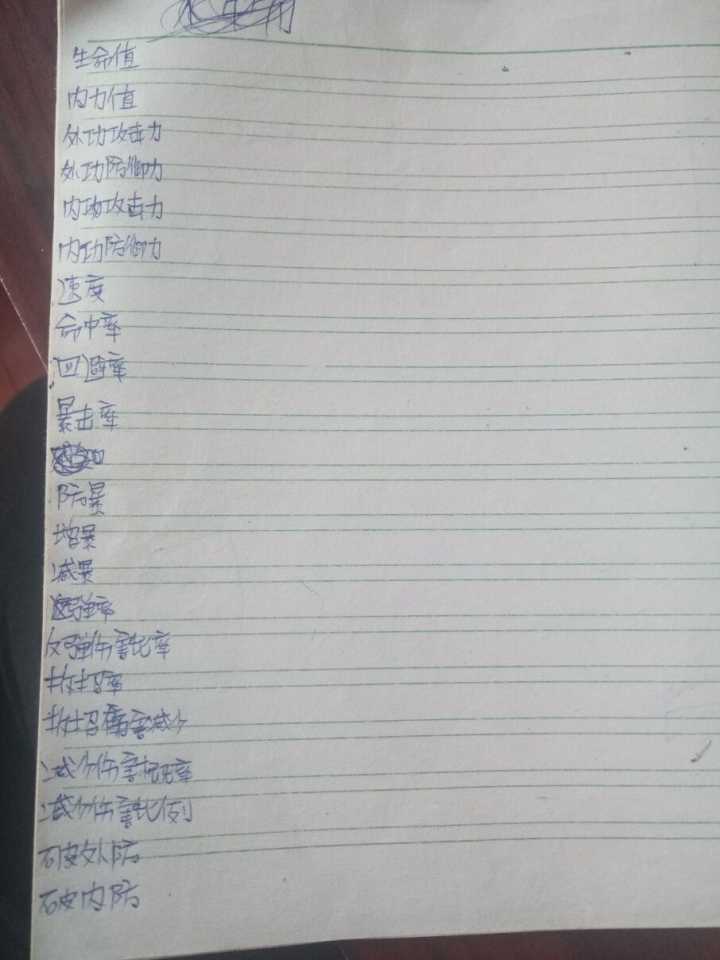 生命值
内力值
外功攻击力
外功防御力
内功攻击力
内功防御力
速度
命中率
回避率
暴击率
防暴
增暴
减暴
反弹率
反弹伤害比率
拆招率
拆招伤害减少
减少伤害概率
减少伤害比例
破外防
破内防